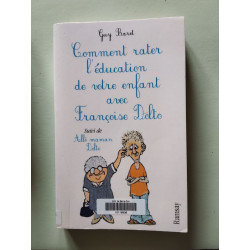 Guy Baret
Comment rater
l'éducation
de votre enfant
avec
Françoise Dolto
suivi de
Allô maman
Dolto
Ramsay